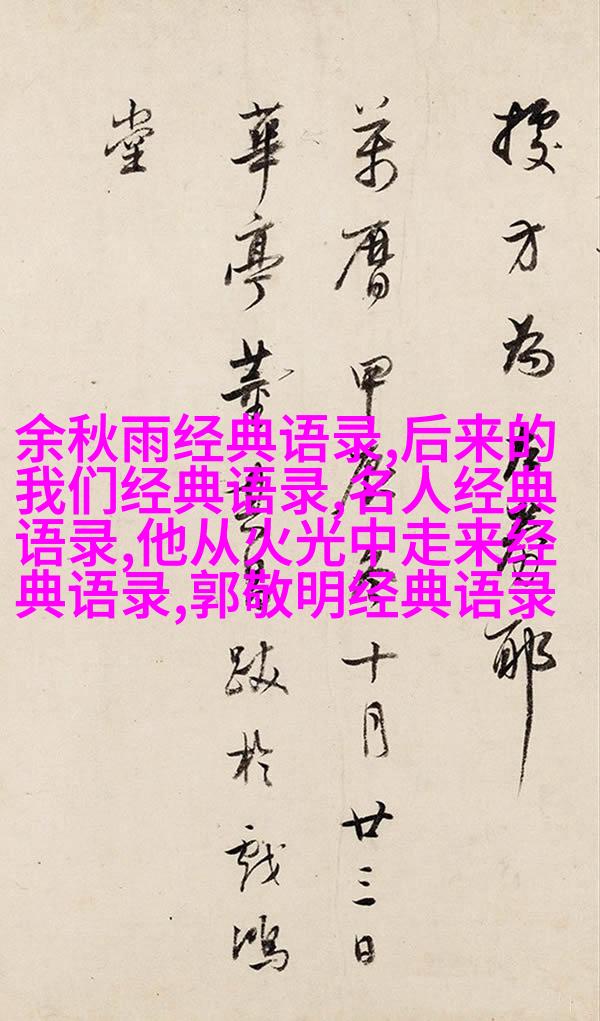 方為耶
萬曆甲辰冬十月廿三日
華亭董其昌跋於戲鴻
堂
余秋雨经典语录,后来的
我们经典语录,名人经典
语录,他从火光中走来经
典语录,郭敬明经典语录